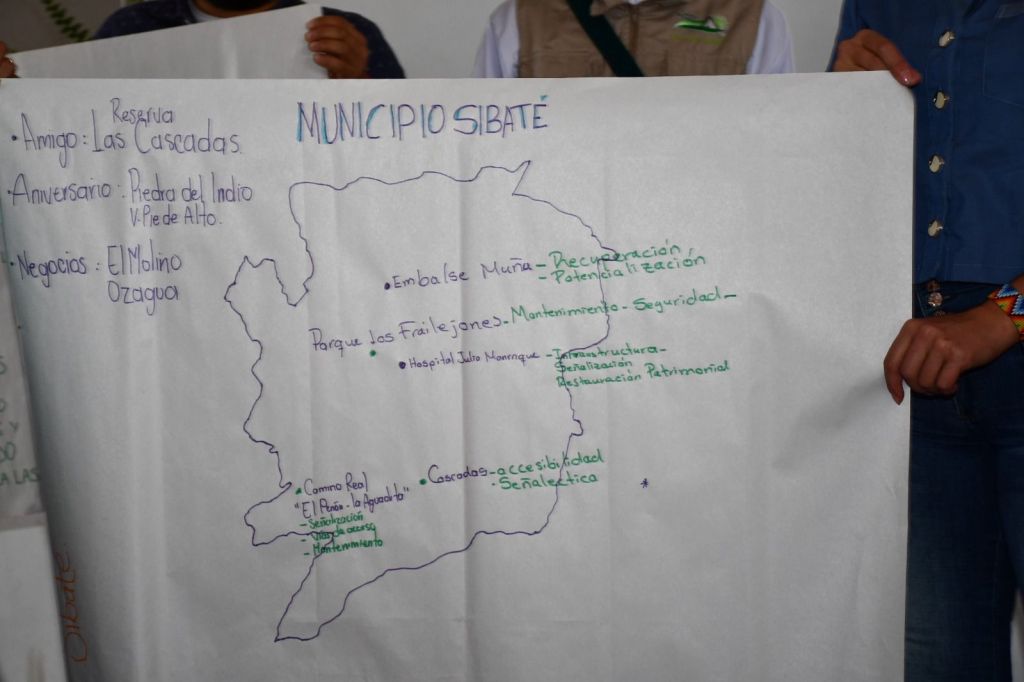 MUNICIPIO SIBATÉ
Reserva
• Amigo: Las Cascadas.
• Aniversario: Piedra del Indio
V. Pie de Alto.
• Negocios: El Molino
Ozagua
• Embalse Muña - Recuperación
- Potencialización
Parque los Frailejones - Mantenimiento - Seguridad -
• Hospital Julio Manrrique - Infraestructura -
Señalización
Restauración Patrimonial
• Cascadas - accesibilidad
• Señalectica
• Camino Real
"El Peñón - la Aguadita"
- Señalización
- Vías de acceso
- Mantenimiento
*
Sibaté
A LAS